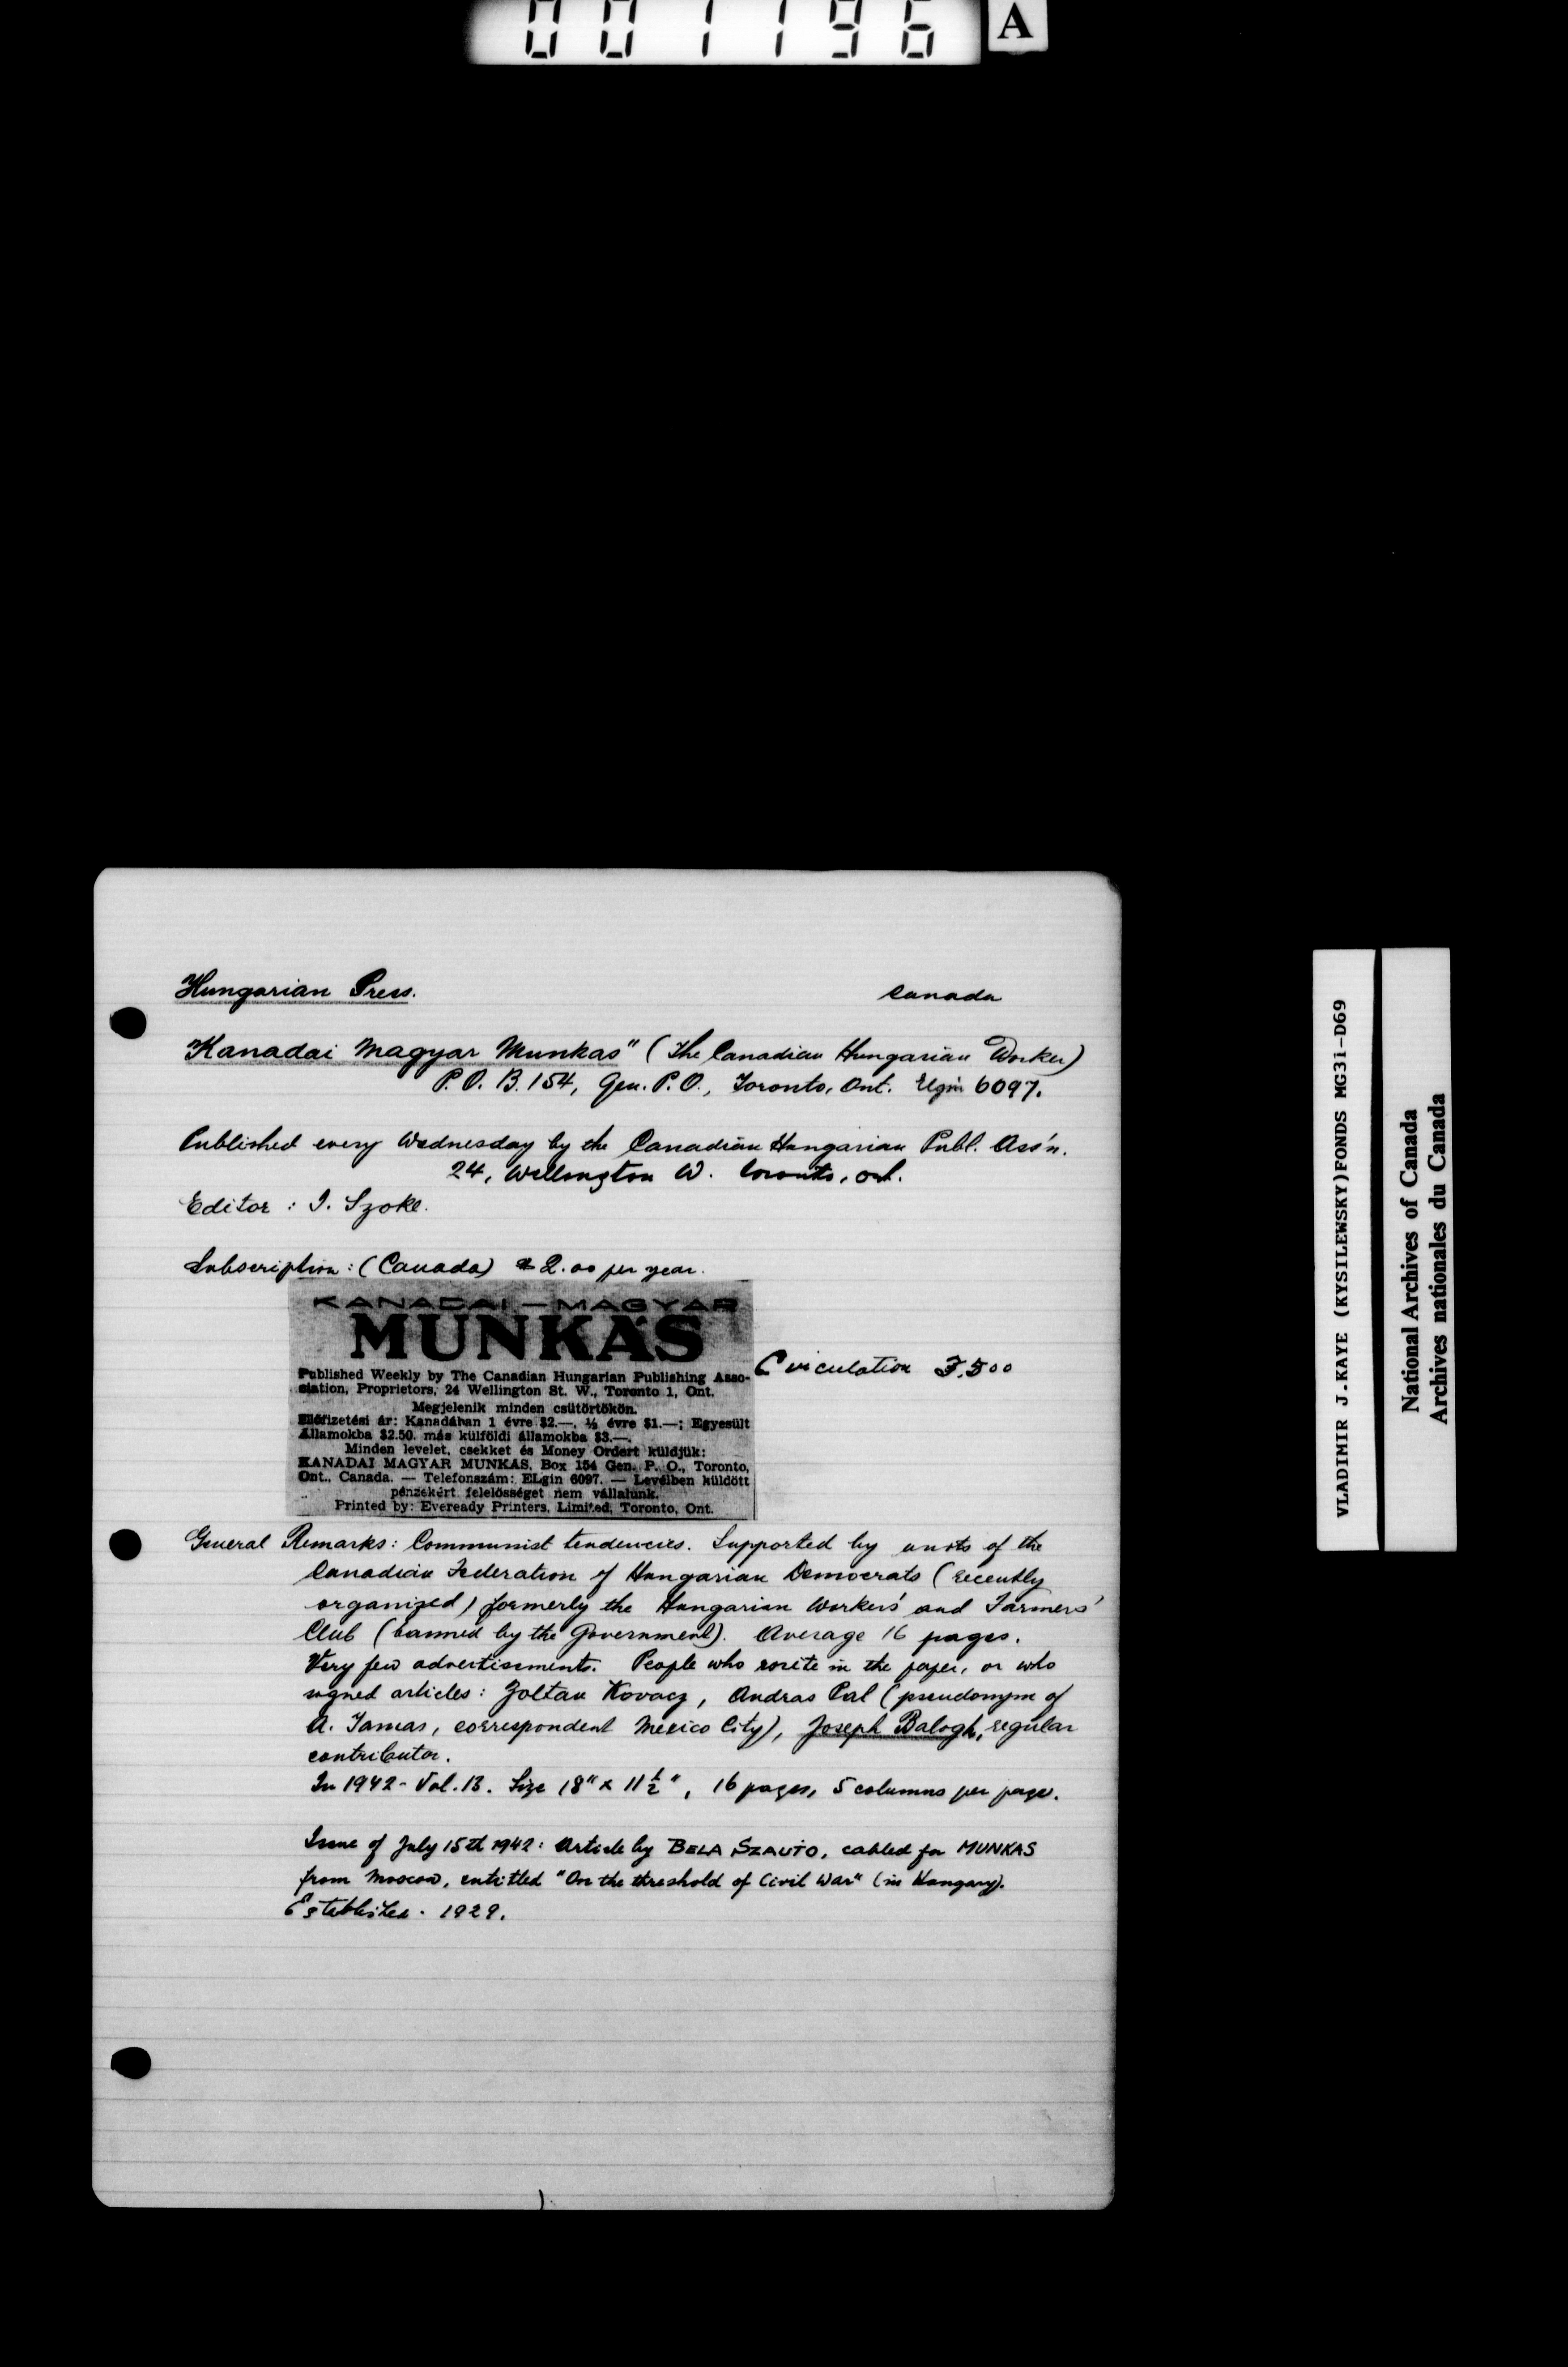 001196 A
Hungarian Press.
Canada
"Kanadai Magyar Munkas" (The Canadian Hungarian Worker)
P.O. B. 154, Gen. P.O., Toronto, Ont. Elgin 6097.
Published every Wednesday by the Canadian Hungarian Publ. Ass'n.
24, Wellington W. Toronto, Ont.
Editor : I. Szoke.
Subscription: (Canada) $2.00 per year.
KANADAI — MAGYAR
MUNKÁS
Published Weekly by The Canadian Hungarian Publishing Asso-
ciation, Proprietors, 24 Wellington St. W., Toronto 1, Ont.
Megjelenik minden csütörtökön.
Előfizetési ár: Kanadában 1 évre $2.—, ½ évre $1.—; Egyesült
Államokba $2.50, más külföldi államokba $3.—.
Minden levelet, csekket és Money Ordert küldjük:
KANADAI MAGYAR MUNKAS, Box 154 Gen. P. O., Toronto,
Ont., Canada. — Telefonszám: ELgin 6097. — Levélben küldött
pénzekért felelősséget nem vállalunk.
Printed by: Eveready Printers, Limited, Toronto, Ont.
Circulation ,500
General Remarks: Communist tendencies. Supported by units of the
Canadian Federation of Hungarian Democrats (recently
organized) formerly the Hungarian Workers' and Farmers'
Club (banned by the Government). Average 16 pages.
Very few advertisements. People who write in the paper, or who
signed articles: Zoltan Kovacz, Andras Pal (pseudonym of
A. Tamas, correspondent Mexico City), Joseph Balogh, regular
contributor.
In 1942 - Vol. 13. Size 18" x 11½", 16 pages, 5 columns per page.
Issue of July 15th 1942: Article by BELA SZAUTO, cabled for MUNKAS
from Moscow, entitled "On the threshold of Civil War" (in Hungary).
Established. 1929.
VLADIMIR J.KAYE (KYSILEWSKY)FONDS MG31-D69
National Archives of Canada
Archives nationales du Canada